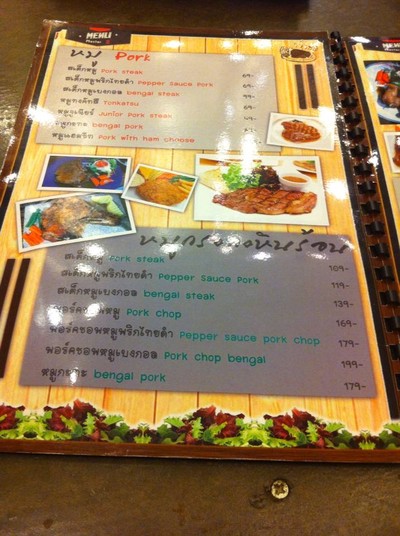 MENU
หมู Pork
สเต็กหมู Pork steak 69-
สเต็กหมูพริกไทยดำ Pepper Sauce Pork 69-
สเต็กหมูเบงกอล bengal steak 99-
หมูทงคัทสึ Tonkatsu
Junior Pork steak 69-
bengal pork
Pork with ham cheese
สเต็กหมู Pork steak 109-
สเต็กหมูพริกไทยดำ Pepper Sauce Pork 119-
สเต็กหมูเบงกอล bengal steak 139-
Pork chop 169-
พอร์คชอพหมูพริกไทยดำ Pepper sauce pork chop 179-
พอร์คชอพหมูเบงกอล Pork chop bengal 199-
หมูกระทะ bengal pork 179-